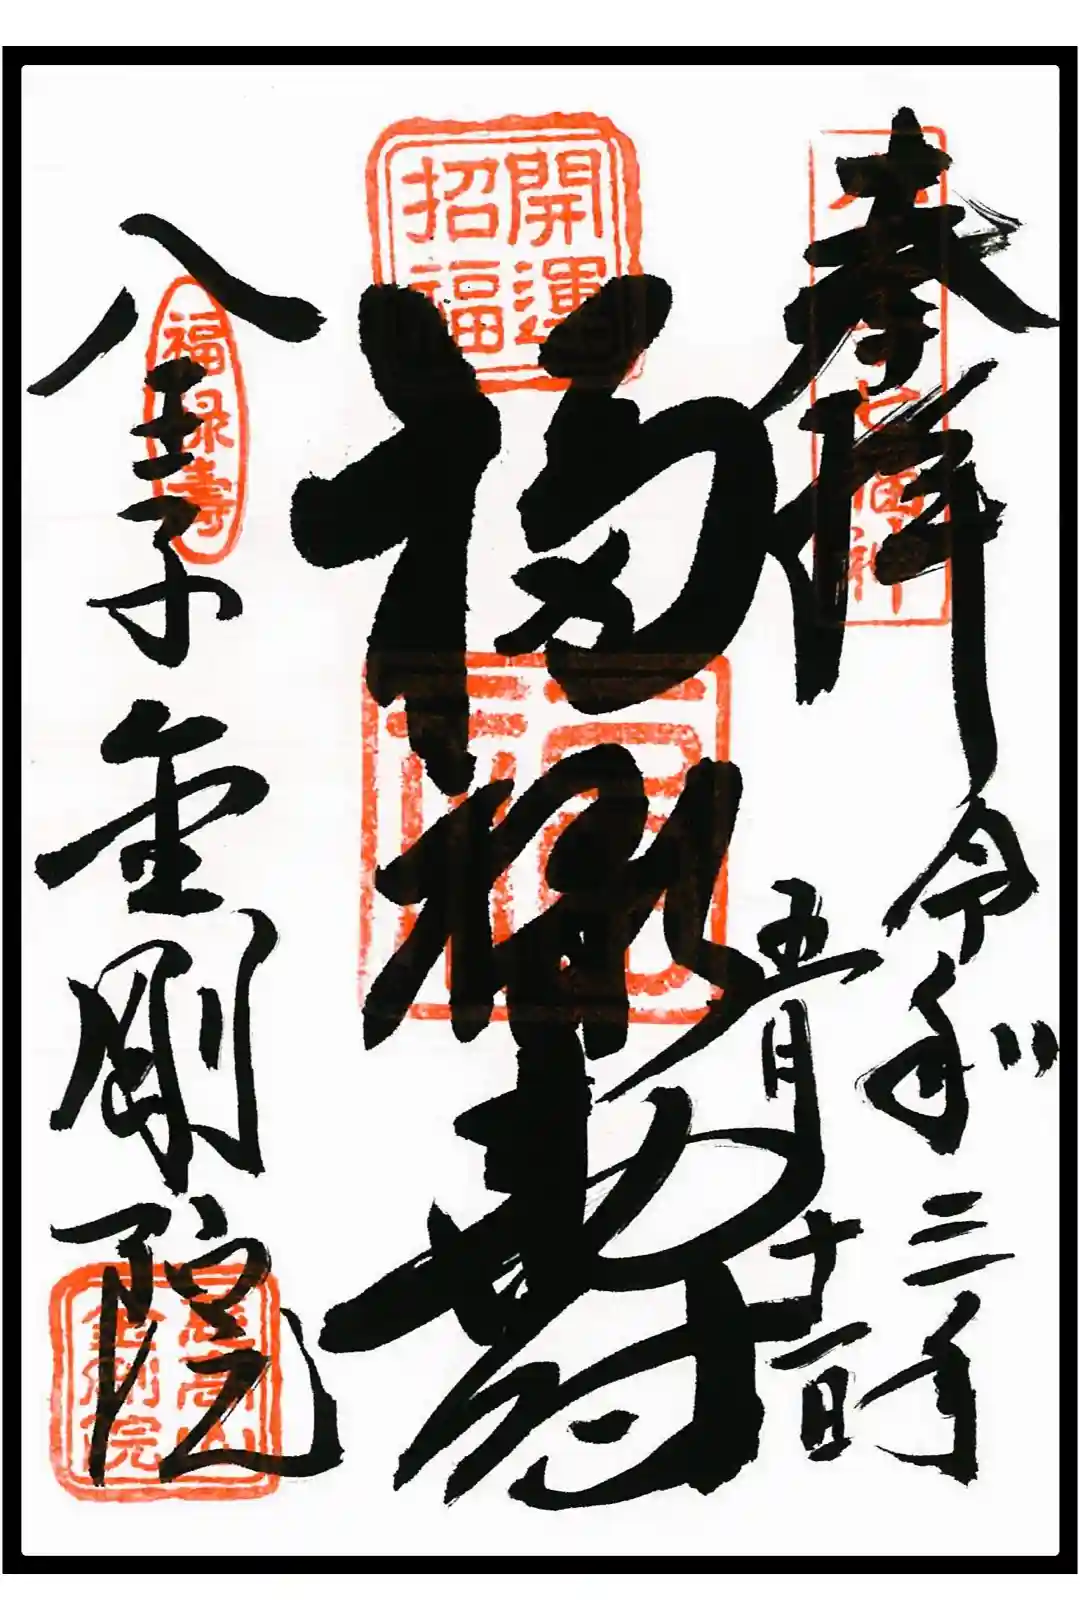 奉拝
令和三年
五月十一日
開運
招福
福禄寿
福禄壽
八王子金剛院
金剛院